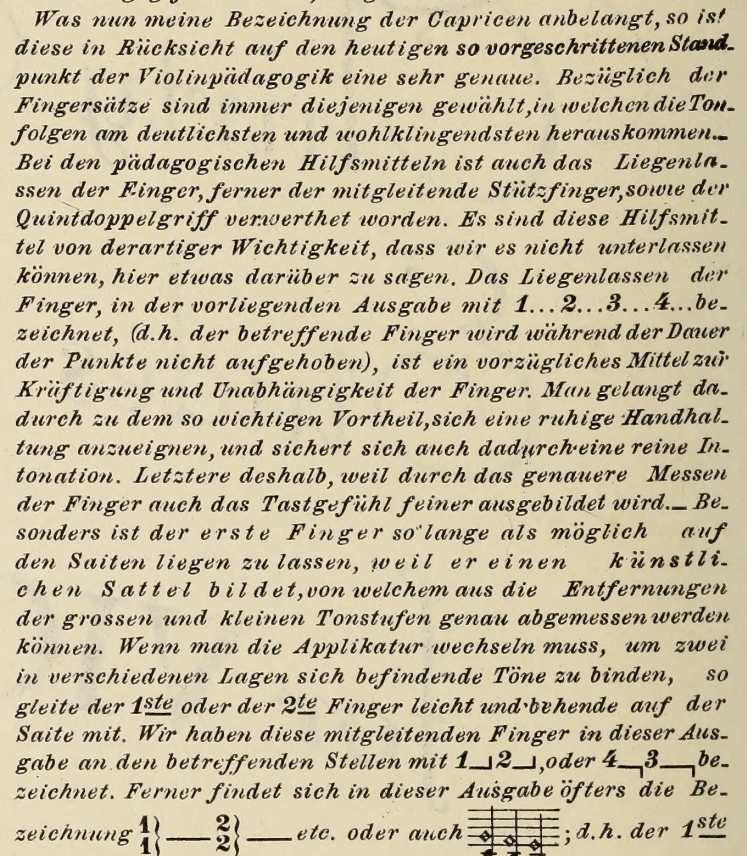 Was nun meine Bezeichnung der Capricen anbelangt, so ist
diese in Rücksicht auf den heutigen so vorgeschrittenen Stand-
punkt der Violinpädagogik eine sehr genaue. Bezüglich der
Fingersätze sind immer diejenigen gewählt, in welchen die Ton-
folgen am deutlichsten und wohlklingendsten herauskommen._
Bei den pädagogischen Hilfsmitteln ist auch das Liegenla-
ssen der Finger, ferner der mitgleitende Stützfinger, sowie der
Quintdoppelgriff verwerthet worden. Es sind diese Hilfsmit-
tel von derartiger Wichtigkeit, dass wir es nicht unterlassen
können, hier etwas darüber zu sagen. Das Liegenlassen der
Finger, in der vorliegenden Ausgabe mit 1...2...3...4...be-
zeichnet, (d.h. der betreffende Finger wird während der Dauer
der Punkte nicht aufgehoben), ist ein vorzügliches Mittel zur
Kräftigung und Unabhängigkeit der Finger. Man gelangt da-
durch zu dem so wichtigen Vortheil, sich eine ruhige Handhal-
tung anzueignen, und sichert sich auch dadurch eine reine In-
tonation. Letztere deshalb, weil durch das genauere Messen
der Finger auch das Tastgefühl feiner ausgebildet wird._ Be-
sonders ist der erste Finger so lange als möglich auf
den Saiten liegen zu lassen, weil er einen künstli-
chen Sattel bildet, von welchem aus die Entfernungen
der grossen und kleinen Tonstufen genau abgemessen werden
können. Wenn man die Applikatur wechseln muss, um zwei
in verschiedenen Lagen sich befindende Töne zu binden, so
gleite der 1ste oder der 2te Finger leicht und behende auf der
Saite mit. Wir haben diese mitgleitenden Finger in dieser Aus-
gabe an den betreffenden Stellen mit 1_⅃2_⅃, oder 4_┐3_┐be-
zeichnet. Ferner findet sich in dieser Ausgabe öfters die Be-
zeichnung 1/1} __ 2/2} __ etc. oder auch ; d.h. der 1ste